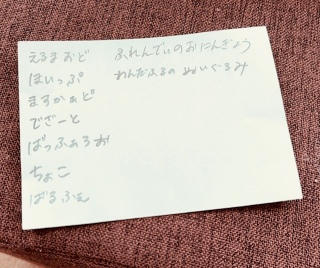 えるまおど
ほいっぷ
ますかぁど
でざーと
ばっふぁろお
ちょこ
ばるふぇ
ふれんでぃのおにんぎょう
わんだふるの ぬいぐるみ